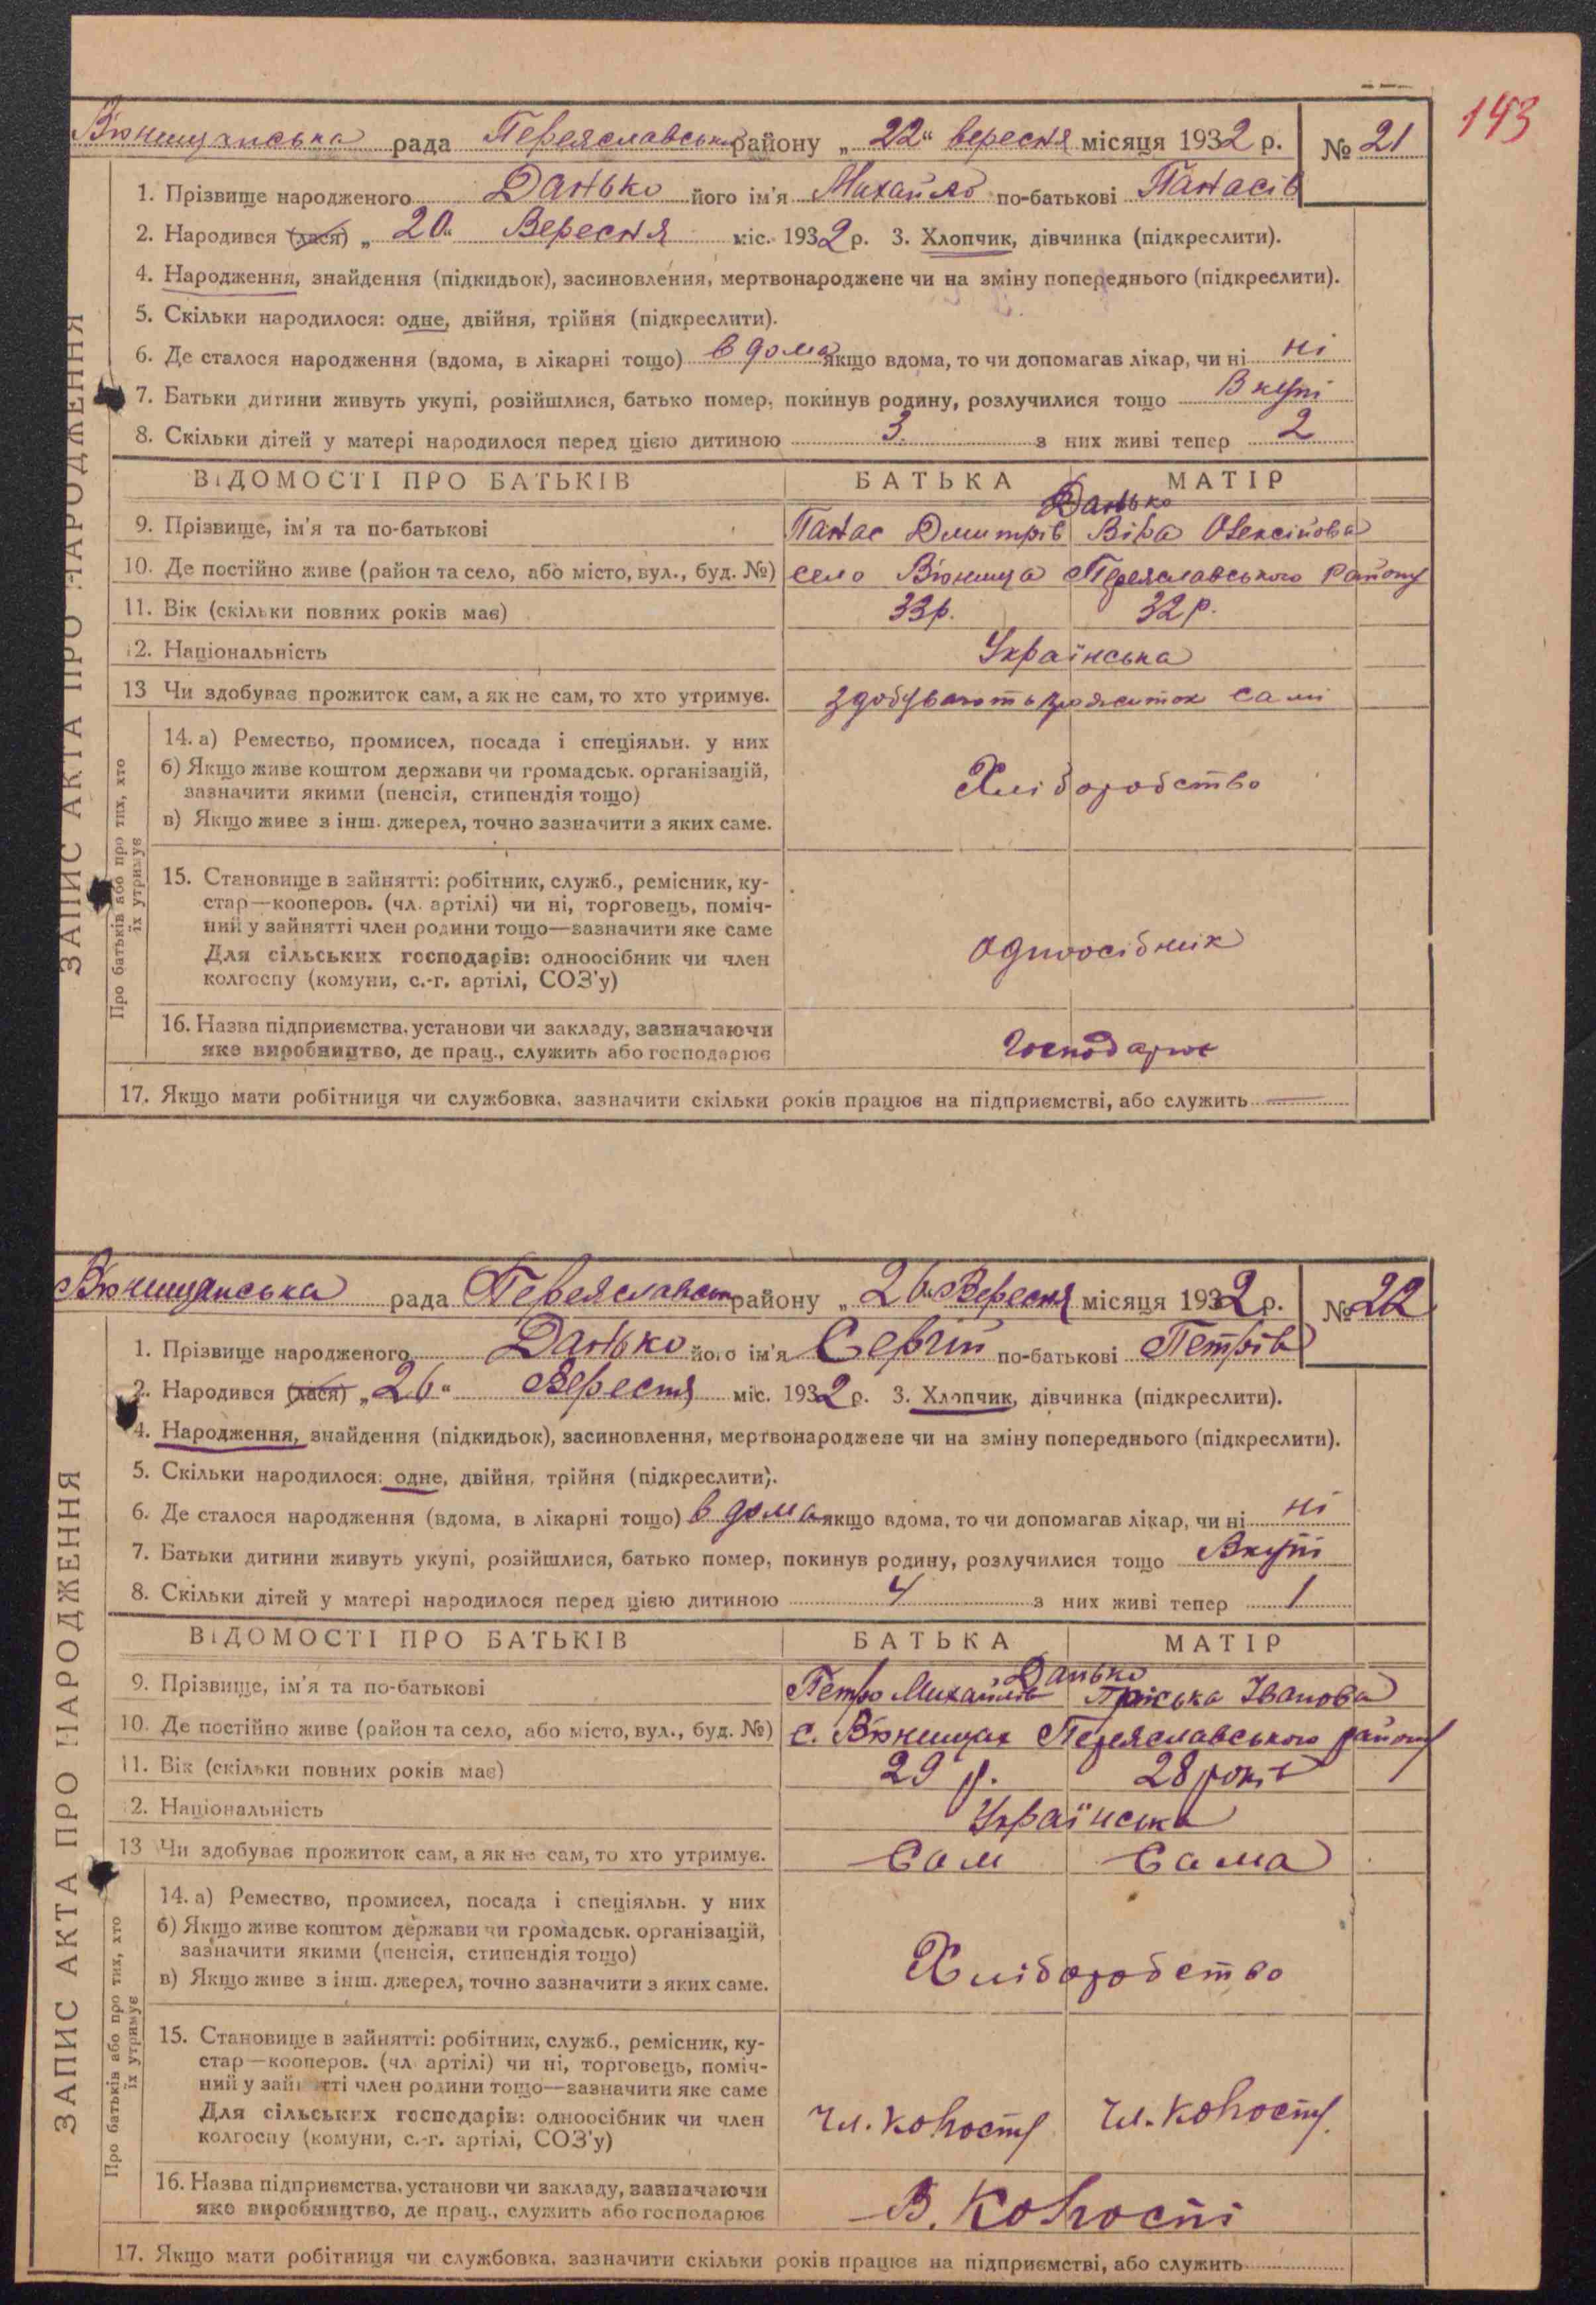 193
Вюнищанська рада Переяславськ району „22“ вересня місяця 1932 р. № 21
1. Прізвище народженого Данько його ім'я Михайло по-батькові Панасів
2. Народився (лася) „20“ Вересня міс. 1932 р. 3. Хлопчик, дівчинка (підкреслити).
4. Народження, знайдення (підкидьок), засиновлення, мертвонароджене чи на зміну попереднього (підкреслити).
5. Скільки народилося: одне, двійня, трійня (підкреслити).
6. Де сталося народження (вдома, в лікарні тощо) в дома якщо вдома, то чи допомагав лікар, чи ні ні
7. Батьки дитини живуть укупі, розійшлися, батько помер, покинув родину, розлучилися тощо Вкупі
8. Скільки дітей у матері народилося перед цією дитиною 3 з них живі тепер 2
ВІДОМОСТІ ПРО БАТЬКІВ БАТЬКА МАТІР
Данько
9. Прізвище, ім'я та по-батькові Панас Дмитрів Віра Олексійова
10. Де постійно живе (район та село, або місто, вул., буд. №) село Вюнища Переяславського району
11. Вік (скільки повних років має) 33р. 32р.
12. Національність Українська
13 Чи здобуває прожиток сам, а як не сам, то хто утримує. здобувають прожиток самі
14. а) Ремество, промисел, посада і спеціяльн. у них
б) Якщо живе коштом держави чи громадськ. організацій,
зазначити якими (пенсія, стипендія тощо) Хліборобство
в) Якщо живе з інш. джерел, точно зазначити з яких саме.
15. Становище в зайнятті: робітник, служб., ремісник, ку-
стар—кооперов. (чл. артілі) чи ні, торговець, поміч-
ний у зайнятті член родини тощо—зазначити яке саме
Для сільських господарів: одноосібник чи член одноосібник
колгоспу (комуни, с.-г. артілі, СОЗ'у)
16. Назва підприємства, установи чи закладу, зазначаючи
яке виробництво, де прац., служить або господарює господарює
17. Якщо мати робітниця чи службовка, зазначити скільки років працює на підприємстві, або служить —
ЗАПИС АКТА ПРО НАРОДЖЕННЯ
Про батьків або про тих, хто
їх утримує
Вюнищанська рада Переяславськ району „26 Вересня місяця 1932 р. № 22
1. Прізвище народженого Данько його ім'я Сергій по-батькові Петрів
2. Народився (лася) „26“ Вересня міс. 1932 р. 3. Хлопчик, дівчинка (підкреслити).
4. Народження, знайдення (підкидьок), засиновлення, мертвонароджене чи на зміну попереднього (підкреслити).
5. Скільки народилося: одне, двійня, трійня (підкреслити).
6. Де сталося народження (вдома, в лікарні тощо) в дома якщо вдома, то чи допомагав лікар, чи ні ні
7. Батьки дитини живуть укупі, розійшлися, батько помер, покинув родину, розлучилися тощо Вкупі
8. Скільки дітей у матері народилося перед цією дитиною 4 з них живі тепер 1
ВІДОМОСТІ ПРО БАТЬКІВ БАТЬКА МАТІР
Данько
9. Прізвище, ім'я та по-батькові Петро Михайлів Пріська Іванова
10. Де постійно живе (район та село, або місто, вул., буд. №) с. Вюнищах Переяславського району
11. Вік (скільки повних років має) 29 р. 28 років
12. Національність Українська
13 Чи здобуває прожиток сам, а як не сам, то хто утримує. Сам Сама
14. а) Ремество, промисел, посада і спеціяльн. у них
б) Якщо живе коштом держави чи громадськ. організацій,
зазначити якими (пенсія, стипендія тощо) Хліборобство
в) Якщо живе з інш. джерел, точно зазначити з яких саме.
15. Становище в зайнятті: робітник, служб., ремісник, ку-
стар—кооперов. (чл. артілі) чи ні, торговець, поміч-
ний у зайнятті член родини тощо—зазначити яке саме
Для сільських господарів: одноосібник чи член чл. колгоспу чл. колгоспу
колгоспу (комуни, с.-г. артілі, СОЗ'у)
16. Назва підприємства, установи чи закладу, зазначаючи
яке виробництво, де прац., служить або господарює В. Колгоспі
17. Якщо мати робітниця чи службовка, зазначити скільки років працює на підприємстві, або служить
ЗАПИС АКТА ПРО НАРОДЖЕННЯ
Про батьків або про тих, хто
їх утримує